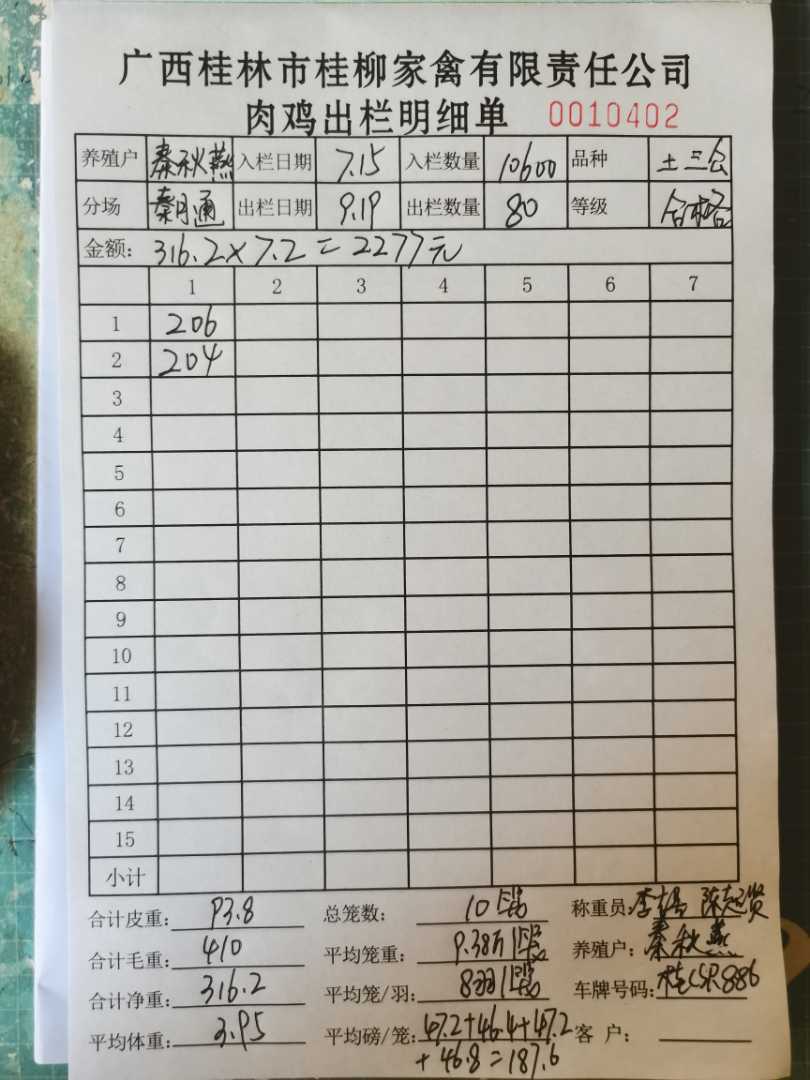 广西桂林市桂柳家禽有限责任公司
肉鸡出栏明细单 0010402
养殖户 秦秋燕 入栏日期 7.15 入栏数量 10600 品种 土三
分场 秦月通 出栏日期 9.19 出栏数量 80 等级 合格
金额: 316.2×7.2=2277元
1 2 3 4 5 6 7
1 206
2 204
3
4
5
6
7
8
9
10
11
12
13
14
15
小计
合计皮重: 93.8 总笼数: 10 称重员:
合计毛重: 410 平均笼重: 9.38 养殖户: 秦秋燕
合计净重: 316.2 平均笼/羽: 8羽 车牌号码: 886
平均体重: 3.95 平均磅/笼: 47.2+46.4+47.2 客 户:
+46.8=187.6